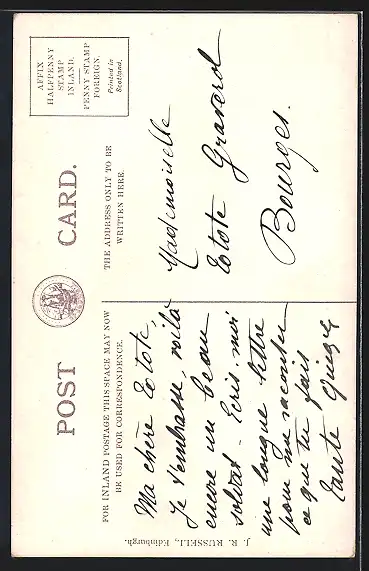 POST CARD.
FOR INLAND POSTAGE THIS SPACE MAY NOW
BE USED FOR CORRESPONDENCE.
THE ADDRESS ONLY TO BE
WRITTEN HERE.
AFFIX
HALFPENNY
STAMP
INLAND.
PENNY STAMP
FOREIGN.
Printed in
Scotland.
Ma chère Totote,
Je t'embrasse, voilà
encore un beau
soldat. Ecris-moi
une longue lettre
pour me raconter
ce que tu fais
Tante
Mademoiselle
Totote Graverol
Bourges.
J. R. RUSSELL, Edinburgh.